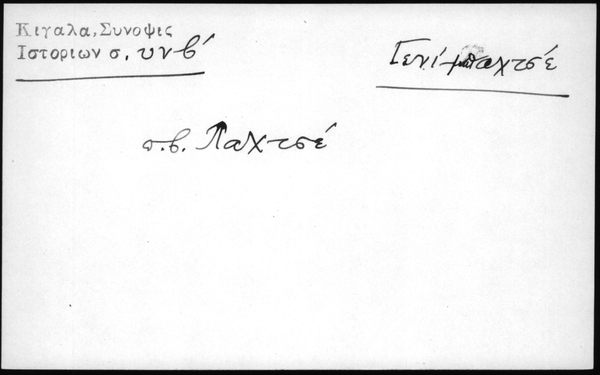 Κιγαλα, Συνοψις
Ιστοριων σ. υνβ΄
Γενί-μπαχτσέ
π.β. Παχτσέ